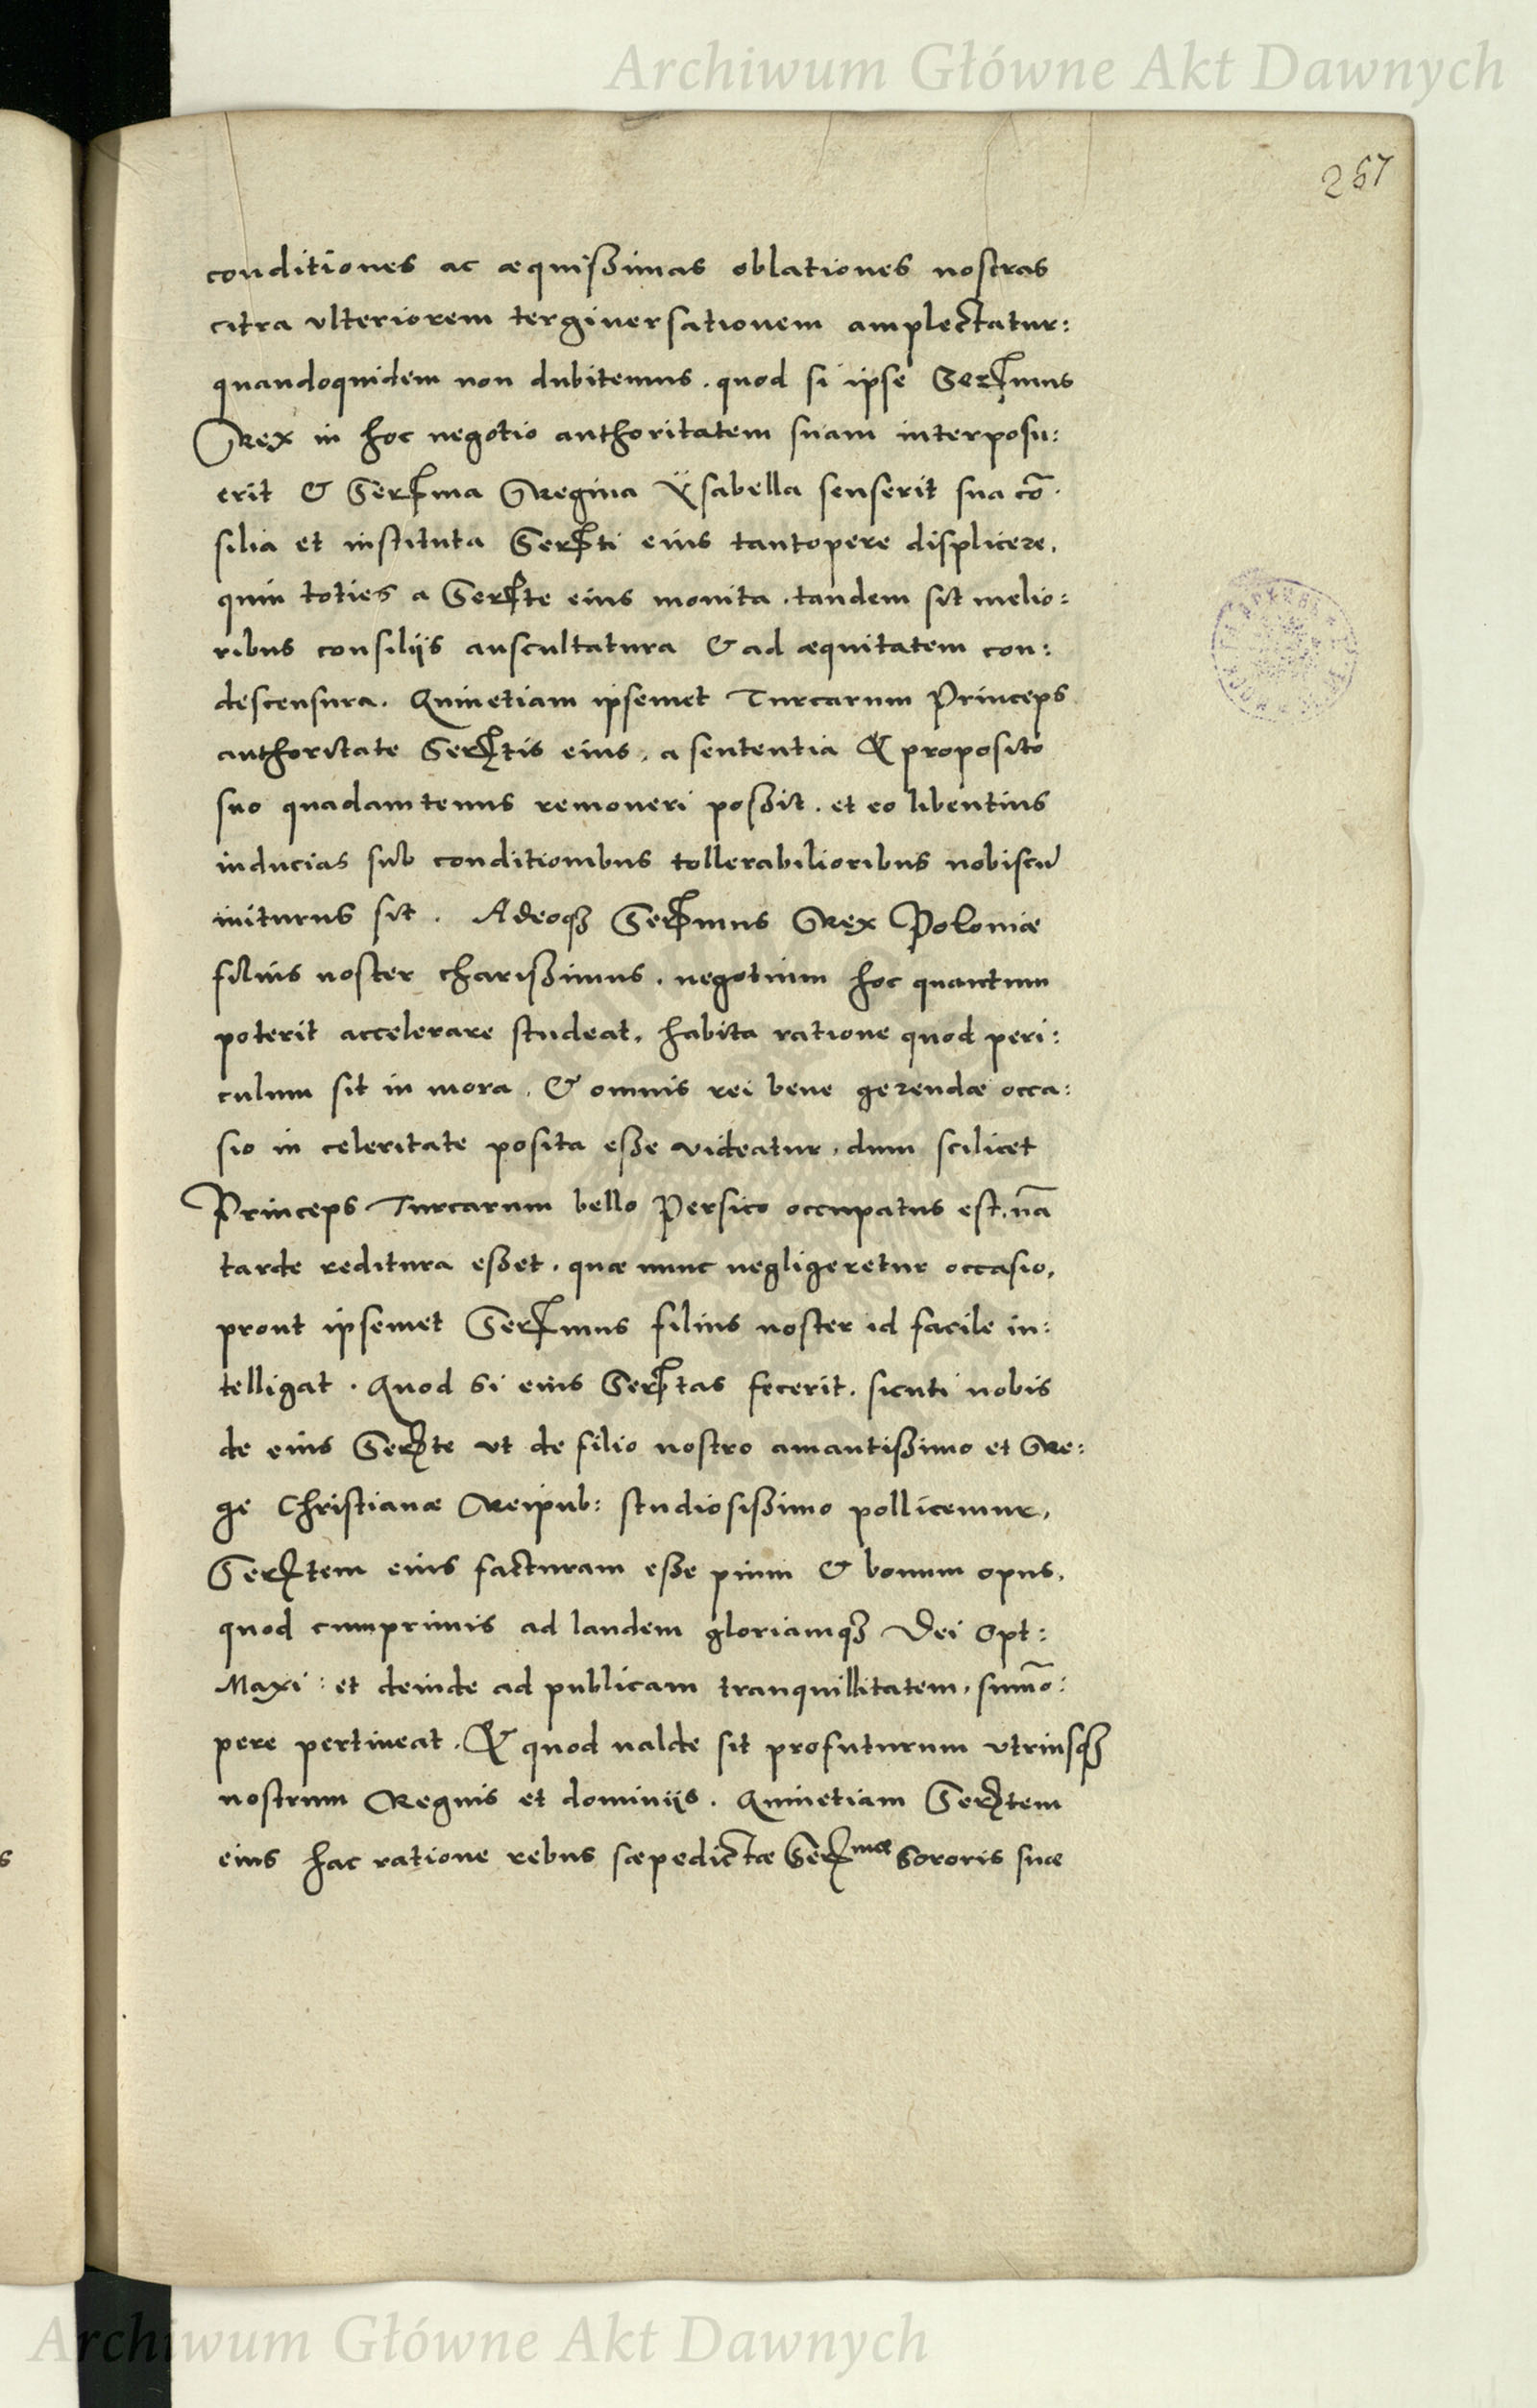 Archiwum Główne Akt Dawnych
267
conditiones ac æquißimas oblationes nostras
citra vlteriorem tergiuersationem amplectatur:
quandoquidem non dubitemus. quod si ipse Sermus
Rex in hoc negotio authoritatem suam interposu:
erit & Serma Regina Ÿsabella senserit sua cō.
silia et instituta Serti eius tantopere displicere,
quin toties a Serte eius monita. tandem sit melio:
ribus consilijs auscultatura & ad æquitatem con:
descensura. Quinetiam ipsemet Turcarum Princeps
authoritate Sertis eius, a sententia & proposito
suo quadamtenus remoueri poßit. et eo libentius
inducias sub conditionibus tollerabilioribus nobiscū
initurus sit. Adeoqȝ Sermus Rex Poloniæ
filius noster charißimus. negotium hoc quantum
poterit accelerare studeat, habita ratione quod peri:
culum sit in mora. & omnis rei bene gerendæ occa:
sio in celeritate posita eße videatur, dum scilicet
Princeps Turcarum bello Persico occupatus est, nā
tarde reditura eßet. quæ nunc negligeretur occasio,
prout ipsemet Sermus filius noster id facile in:
telligat. Quod si eius Sertas fecerit. sicuti nobis
de eius Serte vt de filio nostro amantißimo et Re:
ge Christianæ Reipub: studiosißimo pollicemur,
Sertem eius facturam eße pium & bonum opus,
quod cumprimis ad laudem gloriamqȝ Dei Opt:
Maxi: et deinde ad publicam tranquillitatem, sum̄o:
pere pertineat. & quod ualde sit profuturum vtriusqȝ
nostrum Regnis et dominijs. Quinetiam Sertem
eius hac ratione rebus sæpedictæ Sermæ Sororis suæ
Archiwum Główne Akt Dawnych